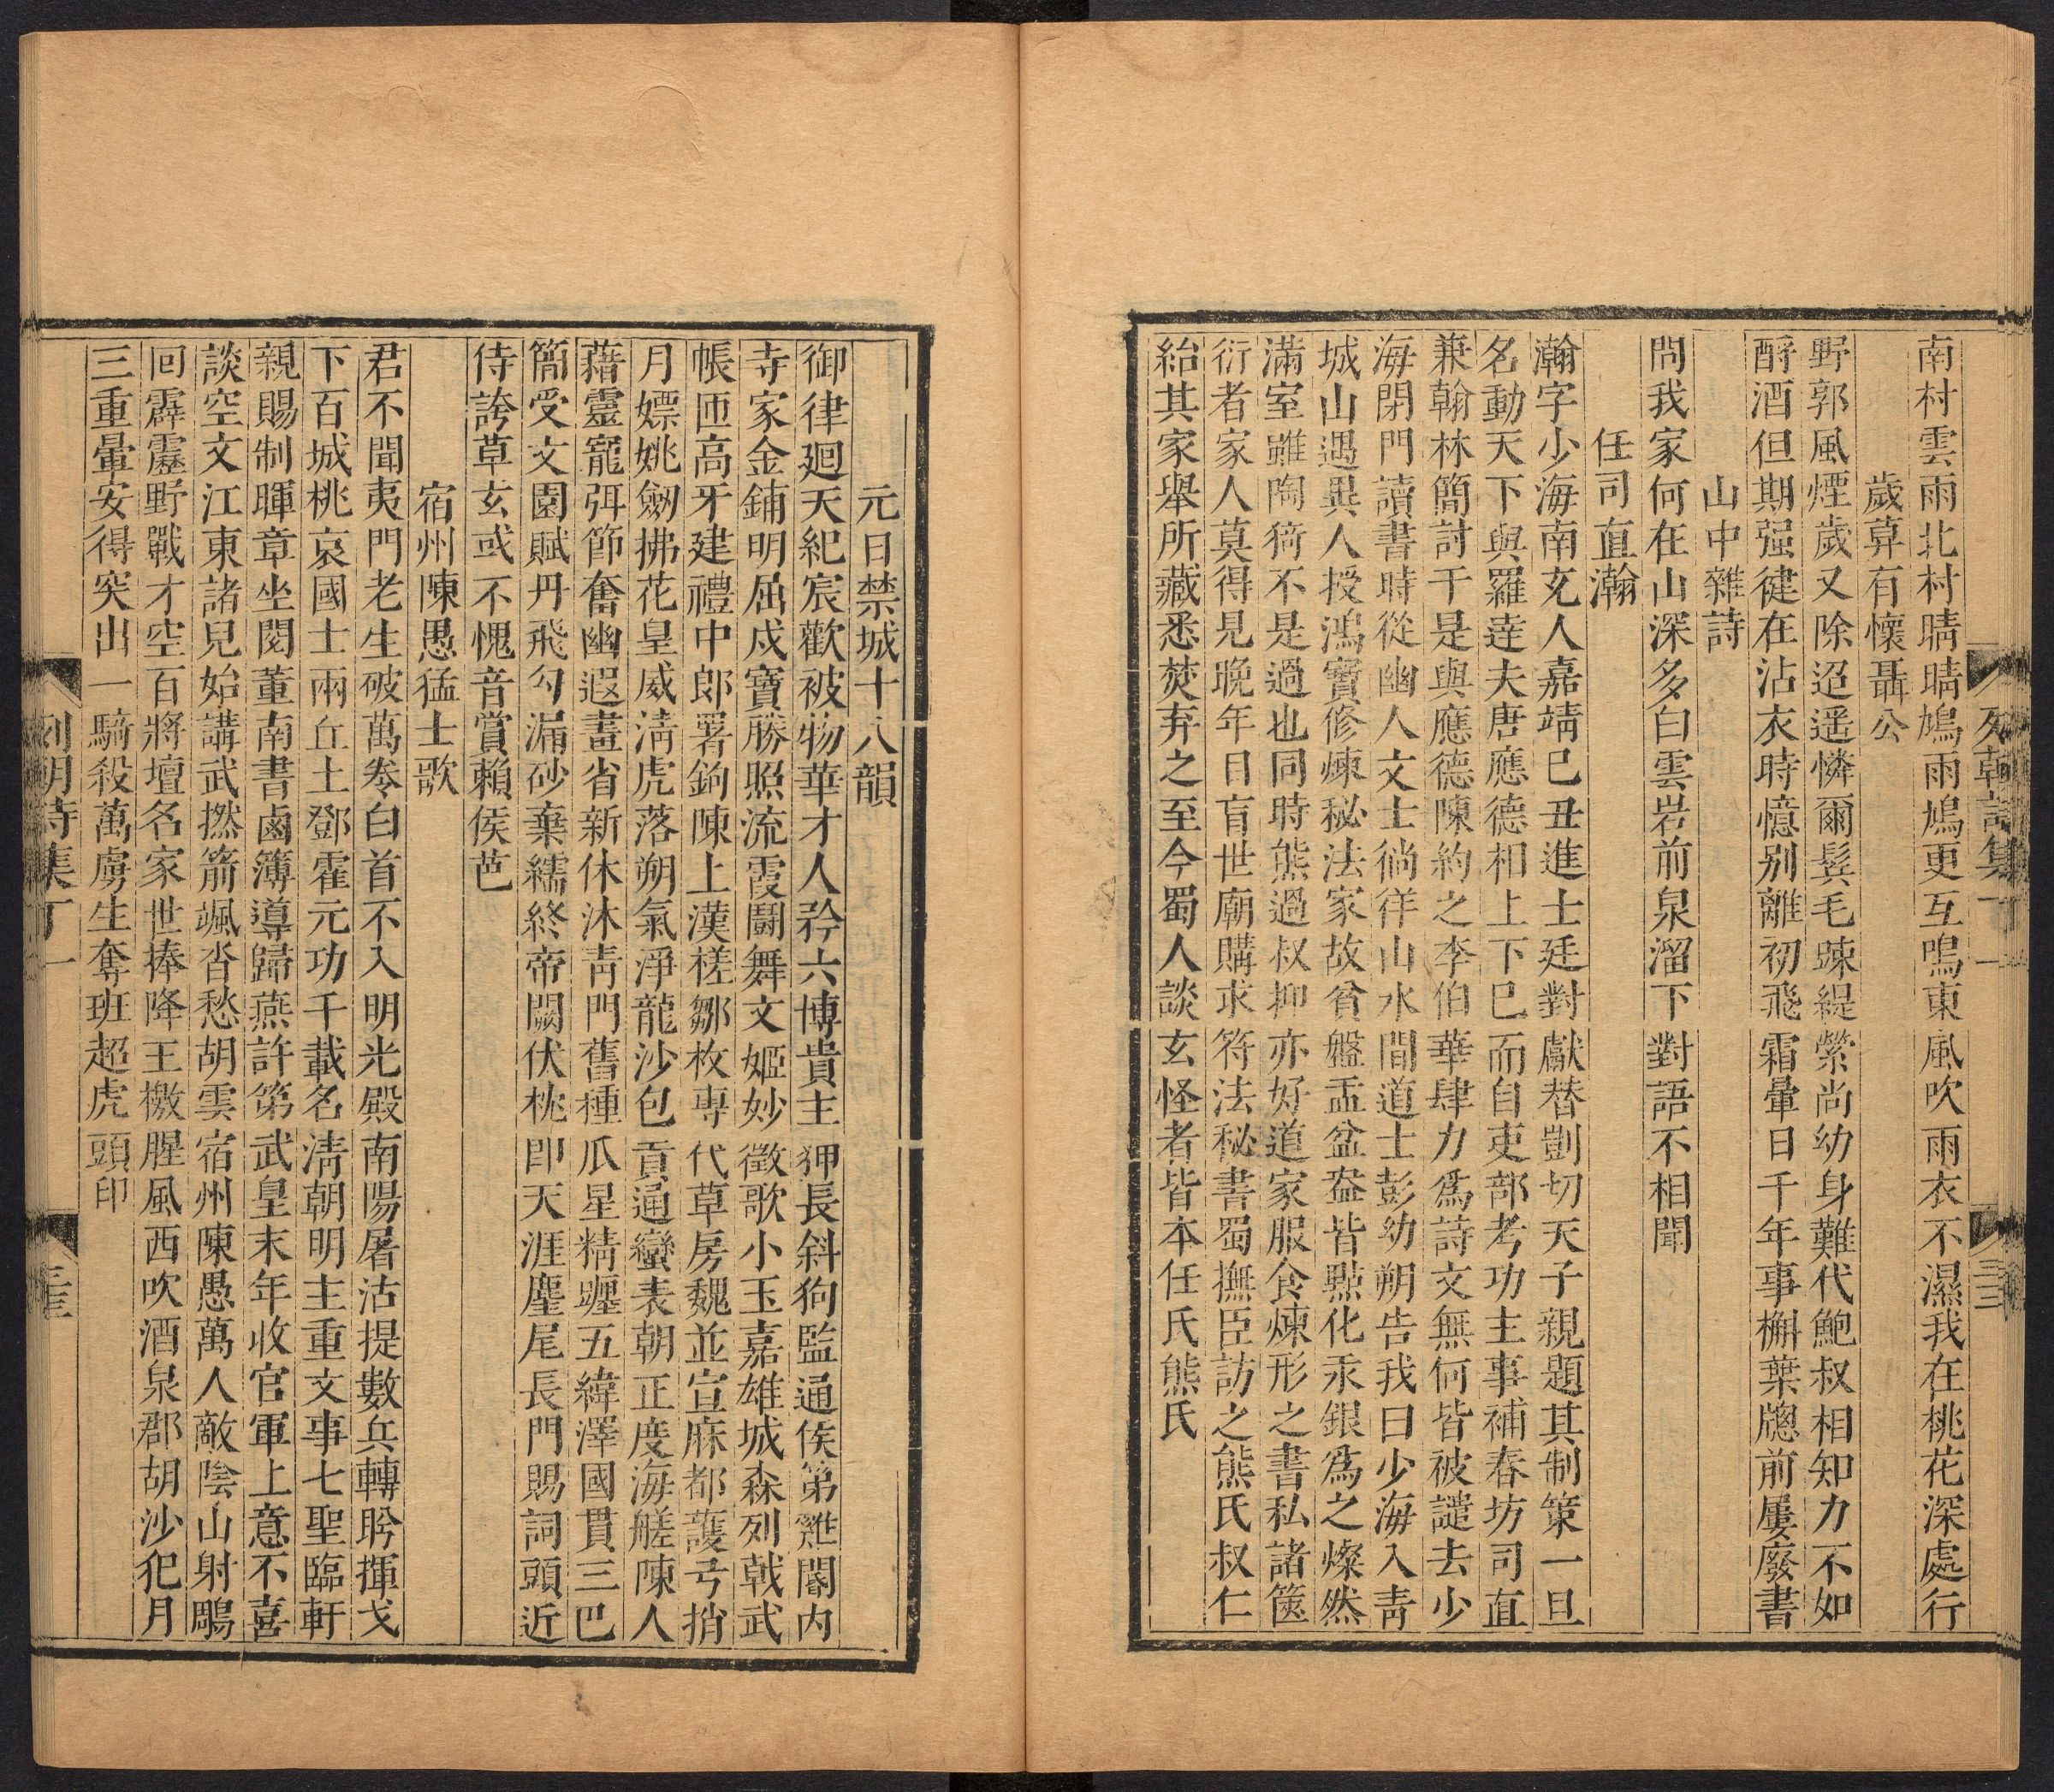 列朝詩集丁一
三
南村雲雨北村晴晴鳩雨鳩更互鳴東風吹雨衣不濕我在桃花深處行
歲莫有懷聶公
野郭風煙歲又除迢遥憐爾鬂毛踈緹縈尚幼身難代鮑叔相知力不如
酹酒但期强健在沾衣時憶别離初飛霜暈日千年事槲葉牕前屢廢書
山中雜詩
問我家何在山深多白雲岩前泉溜下對語不相聞
任司直瀚
瀚字少海南充人嘉靖己丑進士廷對獻替剴切天子親題其制策一旦
名動天下與羅達夫唐應德相上下已而自吏部考功主事補春坊司直
兼翰林簡討于是與應德陳約之李伯華肆力爲詩文無何皆被譴去少
海閉門讀書時從幽人文士徜徉山水間道士彭幼朔告我曰少海入青
城山遇異人授鴻寶修煉秘法家故貧盤盂盆盎皆點化汞銀爲之燦然
滿室雖陶猗不是過也同時熊過叔抑亦好道家服食煉形之書私諸篋
衍者家人莫得見晚年目盲世廟購求符法秘書蜀撫臣訪之熊氏叔仁
紿其家舉所藏悉焚弃之至今蜀人談玄怪者皆本任氏熊氏
元日禁城十八韻
御律廻天紀宸歡被物華才人矜六博貴主狎長斜狗監通侯第雞闥内
寺家金鋪明屈戍寶勝照流霞鬭舞文姬妙徵歌小玉嘉雄城森列戟武
帳匝高牙建禮中郎署鉤陳上漢槎鄒枚專代草房魏並宣麻都護弓捎
月嫖姚劒拂花皇威清虎落朔氣淨龍沙包貢通蠻表朝正度海艖陳人
藉靈寵弭節奮幽遐畫省新休沐靑門舊種瓜星精躔五緯澤國貫三巴
簡受文園賦丹飛勾漏砂棄繻終帝闕伏枕卽天涯麈尾長門賜詞頭近
侍誇草玄或不愧音賞賴侯芭
宿州陳愚猛士歌
君不聞夷門老生破萬卷白首不入明光殿南陽屠沽提數兵轉盻揮戈
下百城桃哀國士兩丘土鄧霍元功千載名淸朝明主重文事七聖臨軒
親賜制暉章坐閱董南書鹵簿導歸燕許第武皇末年收官軍上意不喜
談空文江東諸兒始講武撚箭颯沓愁胡雲宿州陳愚萬人敵陰山射鵰
回霹靂野戰才空百將壇名家世捧降王檄腥風西吹酒泉郡胡沙犯月
三重暈安得突出一騎殺萬虜生奪班超虎頭印
列朝詩集丁一